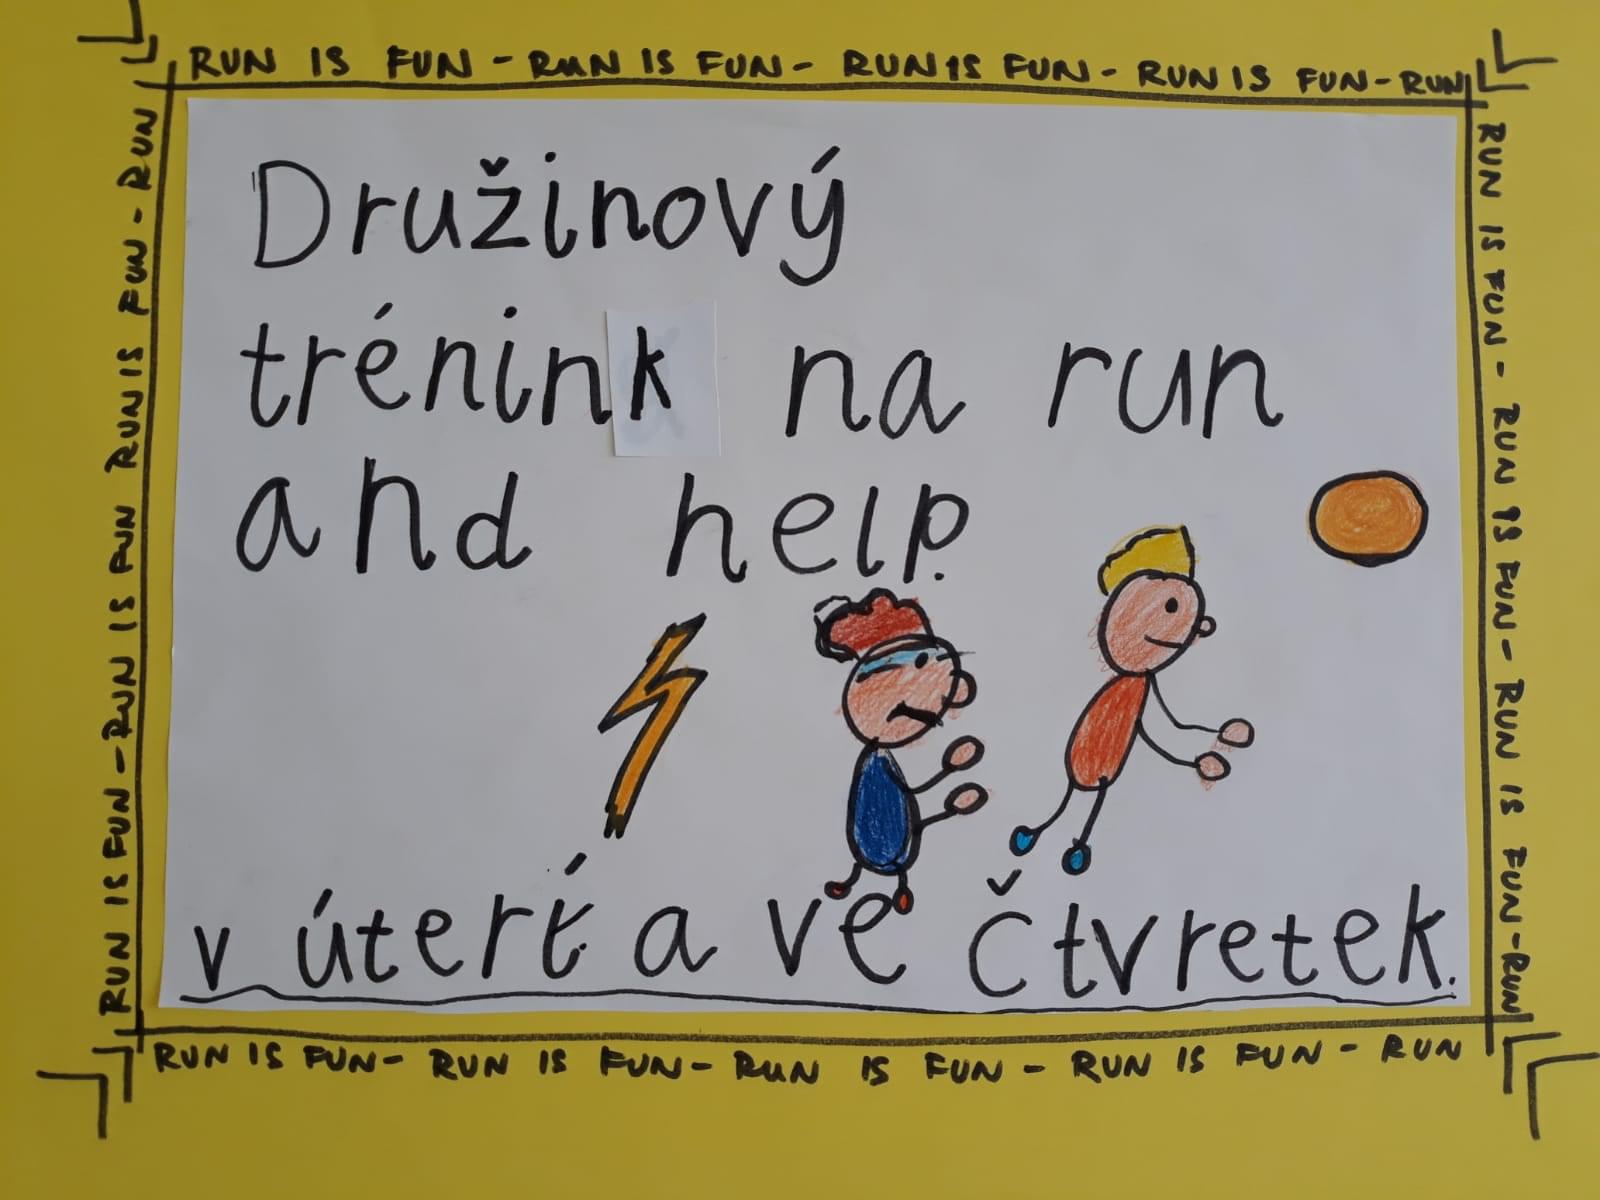 RUN IS FUN - RUN IS FUN - RUN IS FUN - RUN IS FUN - RUN
Družinový
trénink na run
and help.
v úterý a ve čtvretek.
RUN IS FUN - RUN IS FUN - RUN IS FUN - RUN IS FUN - RUN
RUN IS FUN - RUN IS FUN - RUN IS FUN RUN IS FUN - RUN
RUN IS FUN - RUN IS FUN - RUN IS FUN - RUN